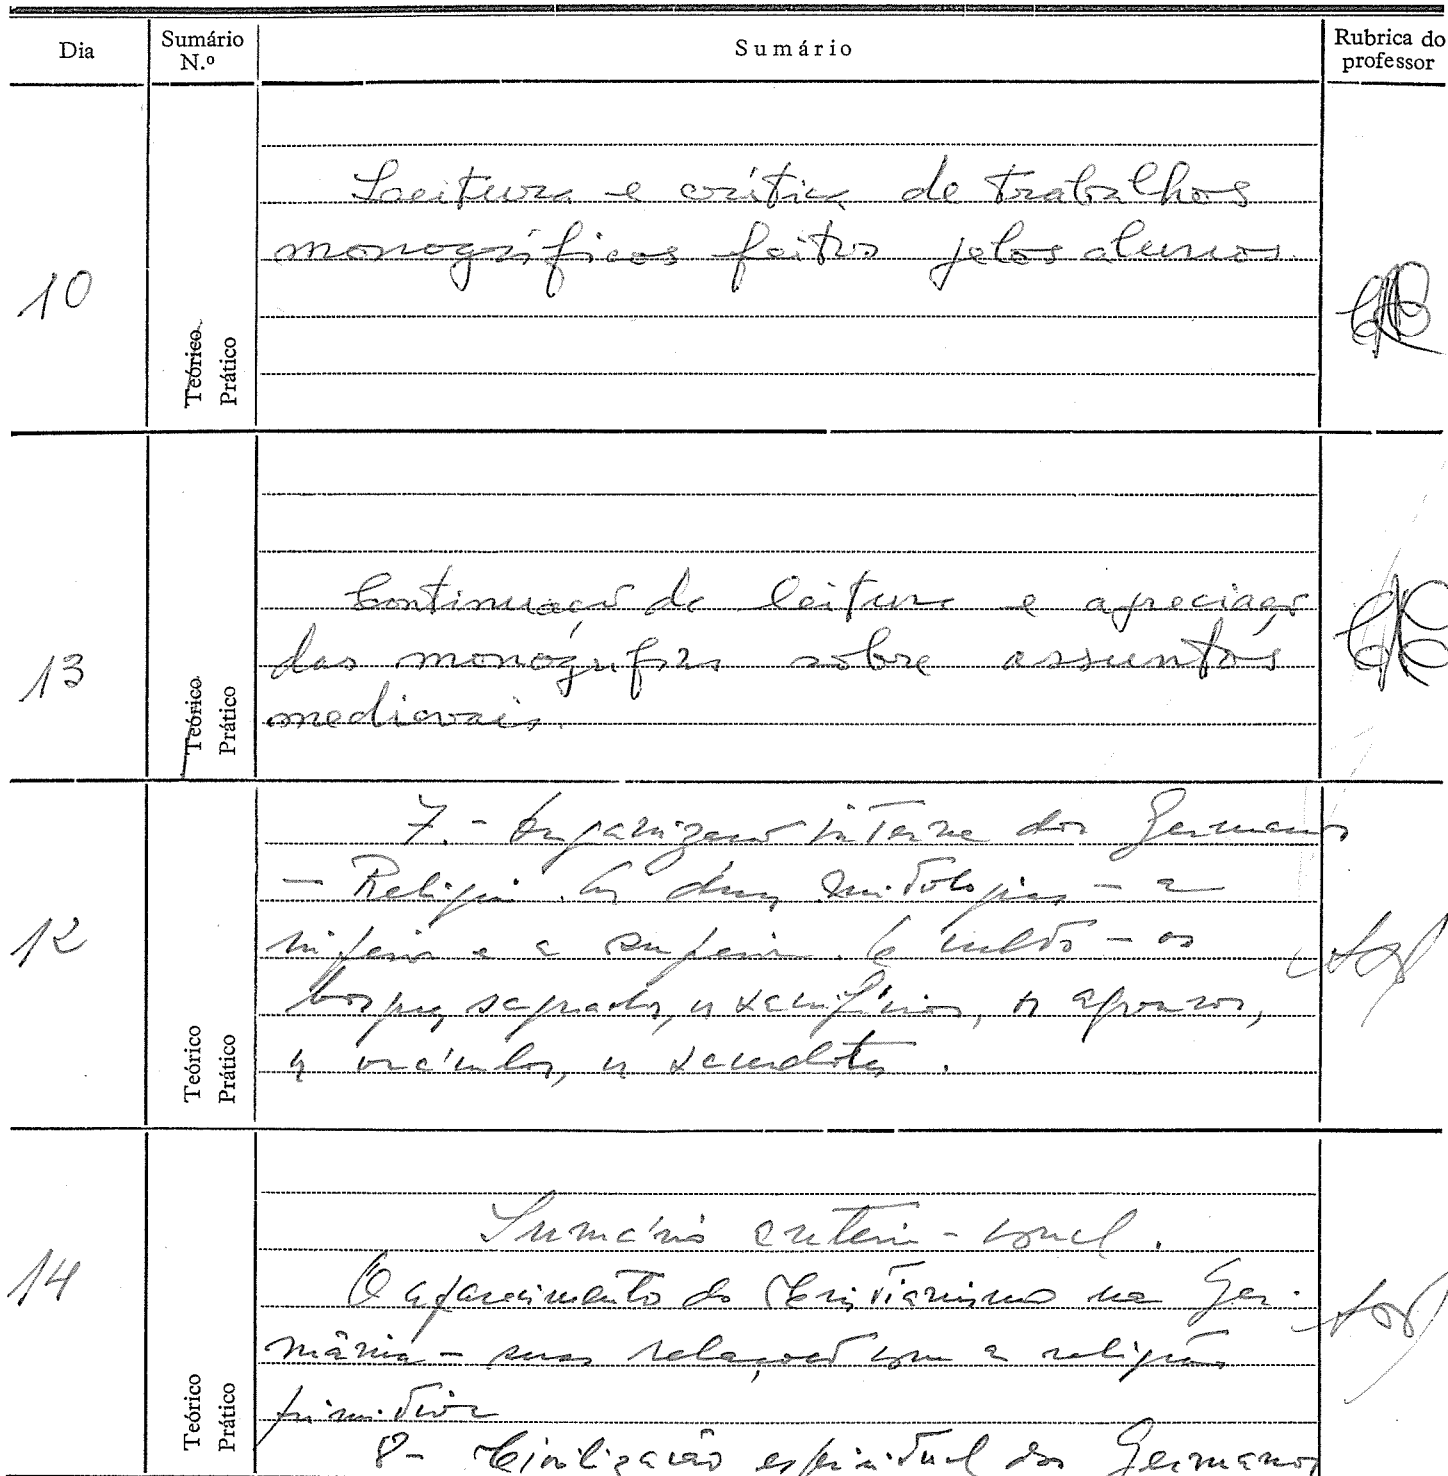 Dia
Sumário
N.º
Sumário
Rubrica do
professor
10
Teórico
Prático
Leitura e crítica de trabalhos
monográficos feitos pelos alunos.
13
Teórico
Prático
Continuação da leitura e apreciação
das monografias sobre assuntos
medievais.
12
Teórico
Prático
7. - Organização interna dos Germanos
- Religião. As duas mitologias - a
inferior e a superior. O culto - os
bosques sagrados, os sacrifícios, os agouros,
os oráculos, os sacerdotes.
14
Teórico
Prático
Sumário anterior -
O aparecimento do Cristianismo na Ger-
mânia - suas relações com a religião
primitiva
8 - Civilização espiritual dos Germanos